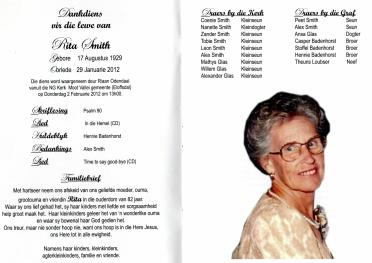 Dankdiens
vir die lewe van
Rita Smith
Gebore 17 Augustus 1929
Oorlede 29 Januarie 2012
Die diens word waargeneem deur Riaan Odendaal
vanuit die NG Kerk Mooi Vallei gemeente (Eloffsdal)
op Donderdag 2 Februarie 2012 om 13h00.
Skriflesing Psalm 90
Lied In die Hemel (CD)
Huldeblyk Hennie Badenhorst
Bedankings Alex Smith
Lied Time to say good-bye (CD)
Familiebrief
Met hartseer neem ons afskeid van ons geliefde moeder, ouma,
grootouma en vriendin Rita in die ouderdom van 82 jaar.
Waar sy ons lief gehad het, sy haar kinders met liefde en sorgsaamheid
help groot maak het. Haar kleinkinders geleer het van 'n wonderlike ouma
en waar sy bowenal haar God gedien het.
Ons treur, maar nie sonder hoop nie, want ons hoop is in die Here Jesus,
ons Here tot in alle ewigheid.
Namens haar kinders, kleinkinders,
agterkleinkinders, familie en vriende.
Draers by die Kerk
Coenie Smith Kleinseun
Nanette Smith Kleindogter
Zander Smith Kleinseun
Tobie Smith Kleinseun
Leon Smith Kleinseun
Alex Smith Kleinseun
Mathys Glas Kleinseun
Willem Glas Kleinseun
Alexander Glas Kleinseun
Draers by die Graf
Peet Smith Seun
Alex Smith Seun
Ansa Glas Dogter
Casper Badenhorst Broer
Stoffel Badenhorst Broer
Hennie Badenhorst Broer
Theuns Loubser Neef